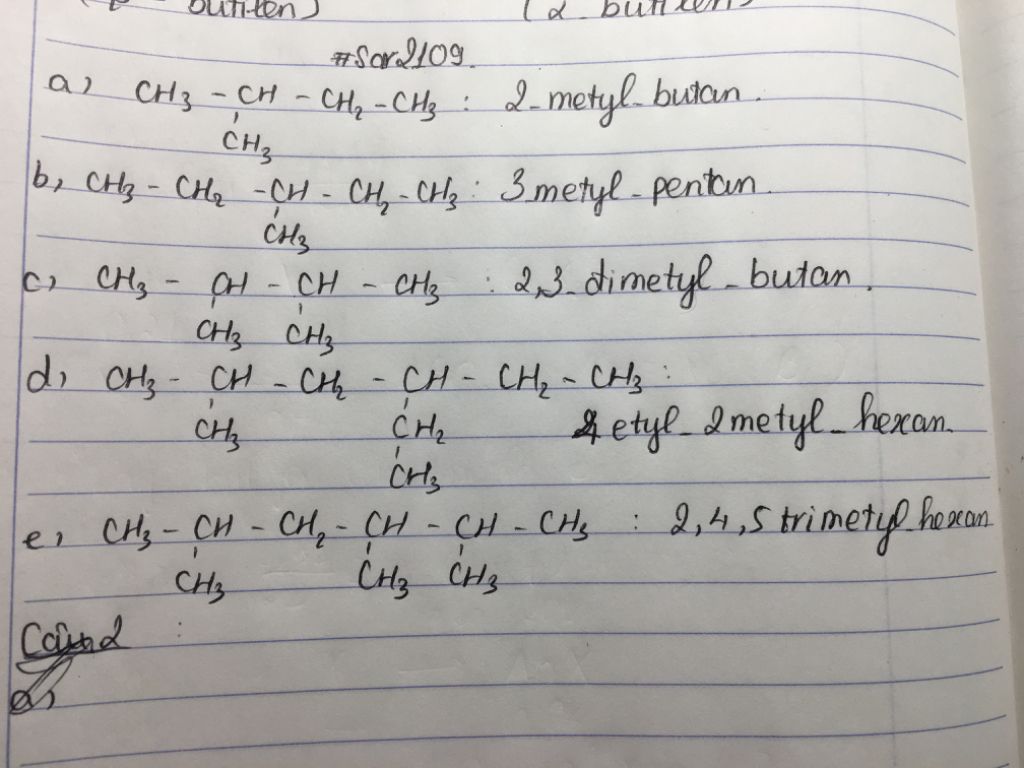 butilen) (2 butilen)
#Sar2109.
a) CH3 - CH - CH2 - CH3 : 2-metyl-butan.
CH3
b, CH3 - CH2 - CH - CH2 - CH3 : 3metyl-pentan.
CH3
c, CH3 - CH - CH - CH3 : 2,3-dimetyl-butan.
CH3 CH3
d, CH3 - CH - CH2 - CH - CH2 - CH3 :
CH3 CH2 4 etyl-2metyl-hexan.
CH3
e, CH3 - CH - CH2 - CH - CH - CH3 : 2,4,5 trimetyl hexan
CH3 CH3 CH3
Câu 2 :
a,